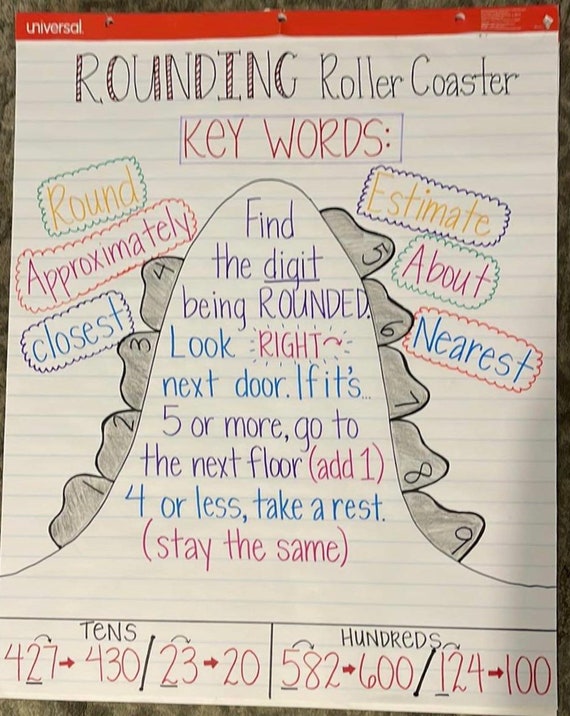 universal
ROUNDING Roller Coaster
KEY WORDS:
Round
Approximately
closest
Estimate
About
Nearest
Find
the digit
being ROUNDED.
Look RIGHT~
next door. If it's...
5 or more, go to
the next floor (add 1)
4 or less, take a rest.
(stay the same)
4
3
2
1
5
6
7
8
9
TENS
427→430/23→20
HUNDREDS
582→600/124→100